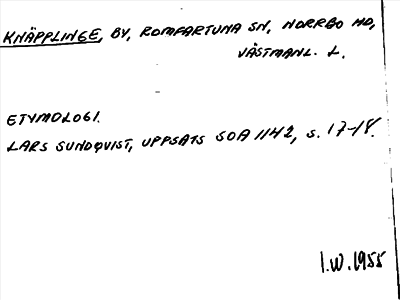 KNÄPPLINGE, BY, ROMFARTUNA SN, NORRBO HD,
VÄSTMANL. L.
ETYMOLOGI.
LARS SUNDQVIST, UPPSATS SOA 1142, s. 17-18.
I.W. 1955